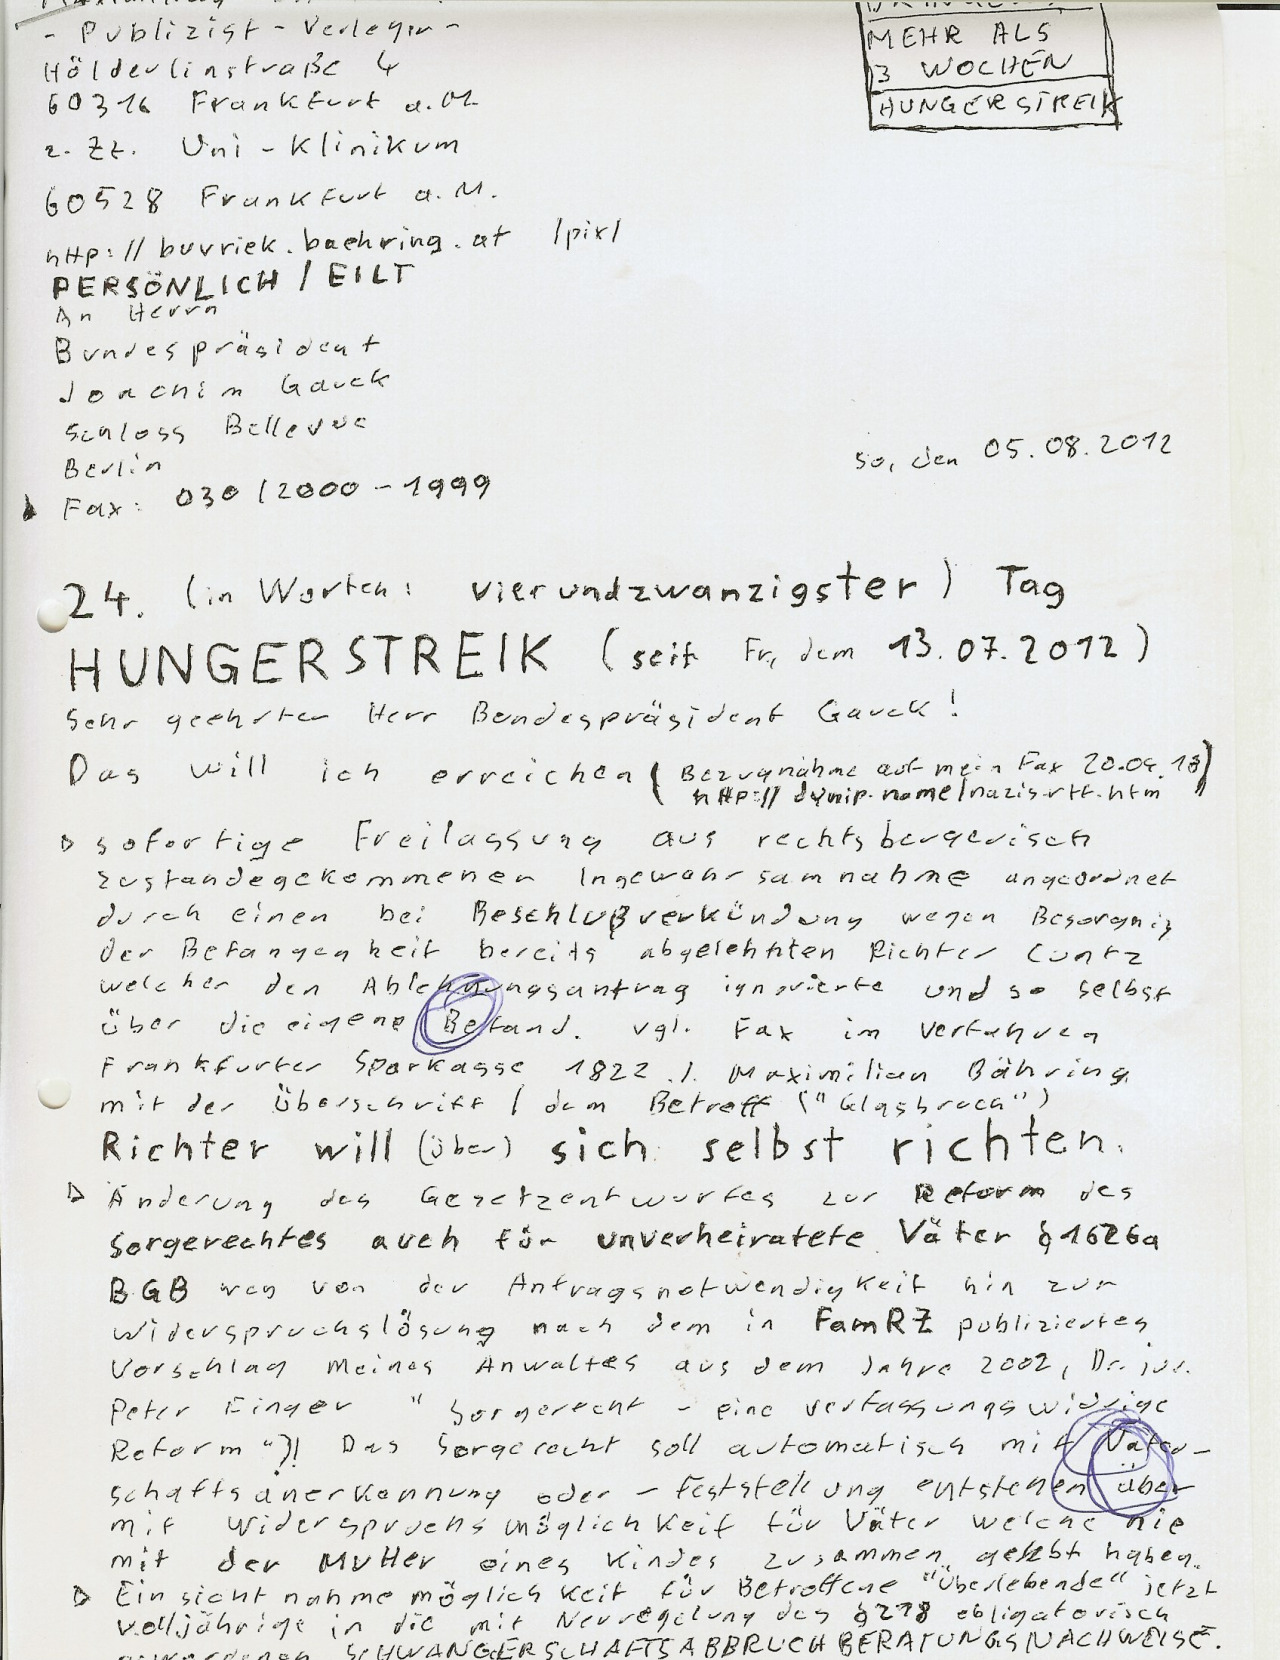 - Publizist - Verleger -
Hölderlinstraße 4
60316 Frankfurt a.M.
z. Zt. Uni-Klinikum
60528 Frankfurt a.M.
http://buvriek.baehring.at /pix/
MEHR ALS
3 WOCHEN
HUNGERSTREIK
PERSÖNLICH / EILT
An Herrn
Bundespräsident
Joachim Gauck
Schloss Bellevue
Berlin
Fax: 030 / 2000 - 1999
So, den 05.08.2012
24. (in Worten: vierundzwanzigster) Tag
HUNGERSTREIK (seit Fr, dem 13.07.2012)
Sehr geehrter Herr Bundespräsident Gauck!
Das will ich erreichen (Bezugnahme auf mein Fax
http://dynip.name/nazis-rtf.htm
sofortige Freilassung aus rechtsbeugerisch
zustandegekommenen Ingewahrsamnahme angeordnet
durch einen bei Beschlußverkündung wegen Besorgnis
der Befangenheit bereits abgelehnten Richter Cuntz
welcher den Ablehnungsantrag ignorierte und so selbst
über die eigene Befand. vgl. Fax im Verfahren
Frankfurter Sparkasse 1822 ./. Maximilian Bähring
mit der Überschrift / dem Betreff ("Glasbruch")
Richter will (über) sich selbst richten.
Änderung des Gesetzentwurfes zur Reform des
Sorgerechtes auch für unverheiratete Väter §1626a
BGB weg von der Antragsnotwendigkeit hin zur
Widerspruchslösung nach dem in FamRZ publizierten
Vorschlag meines Anwaltes aus dem Jahre 2002, Dr. jur.
Peter Finger "Sorgerecht - eine verfassungswidrige
Reform"?! Das Sorgerecht soll automatisch mit Vater-
schaftsanerkennung oder -feststellung entstehen über
mit Widerspruchsmöglichkeit für Väter welche nie
mit der Mutter eines Kindes zusammen gelebt haben.
Einsichtnahmemöglichkeit für Betroffene "Überlebende" jetzt
volljährige in die mit Neuregelung des §218 obligatorisch
gewordenen SCHWANGERSCHAFTSABBRUCHBERATUNGSNACHWEISE.